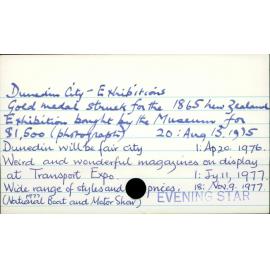 Dunedin City - Exhibitions
Gold medal struck for the 1865 New Zealand
Exhibition bought by the Museum for
$1,500 (photograph) 20: Aug 13, 1975
Dunedin will be fair city 1: Ap 20. 1976.
Weird and wonderful magazines on display
at Transport Expo. 1: Jy 11, 1977.
Wide range of styles and prices, 18: Nov. 9. 1977.
(National Boat and Motor Show) EVENING STAR